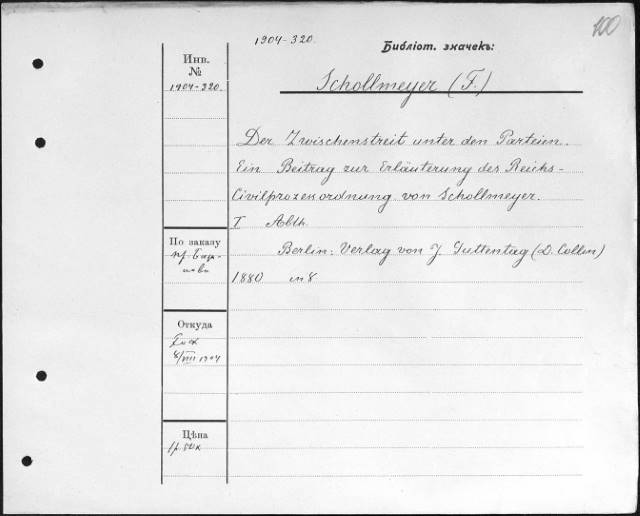 100
1904-320.
Библіот. значекъ:
Инв.
№
1904-320.
Schollmeyer (F.)
Der Zwischenstreit unter den Parteien.
Ein Beitrag zur Erläuterung des Reichs-
Civilprozessordnung von Schollmeyer.
I Abth.
Berlin: Verlag von J. Guttentag (D. Collin)
1880 in 8
По заказу
пр.
Откуда
8/VIII 1904
Цѣна
1р. 50к